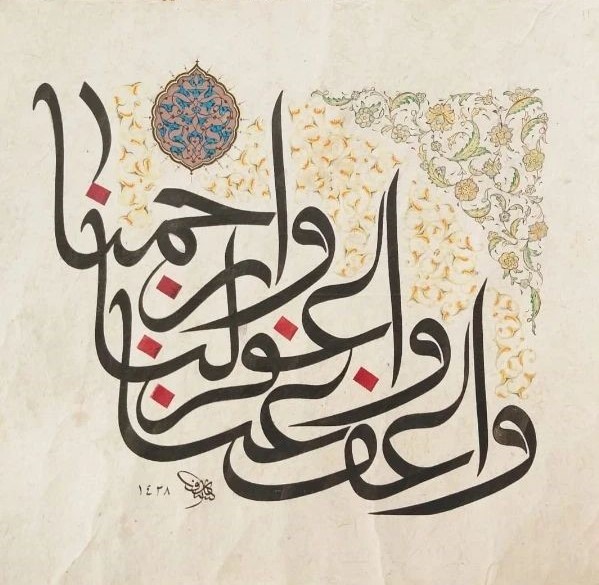 واعف عنا
واغفر لنا
وارحمنا
١٤٣٨